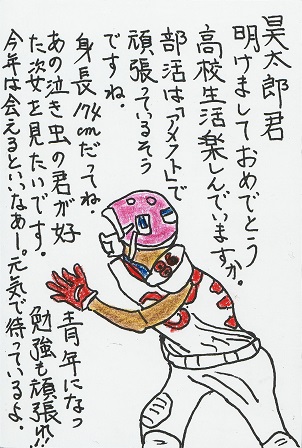 昊太郎君
明けましておめでとう
高校生活楽しんでいますか。
部活は「アメフト」で
頑張っているそう
ですね。
身長174cmだってね。
あの泣き虫の君が好
青年になっ
た次女を見たいです。
今年は会えるといいなあー。元気で待っているよ。
勉強も頑張れ!!
86